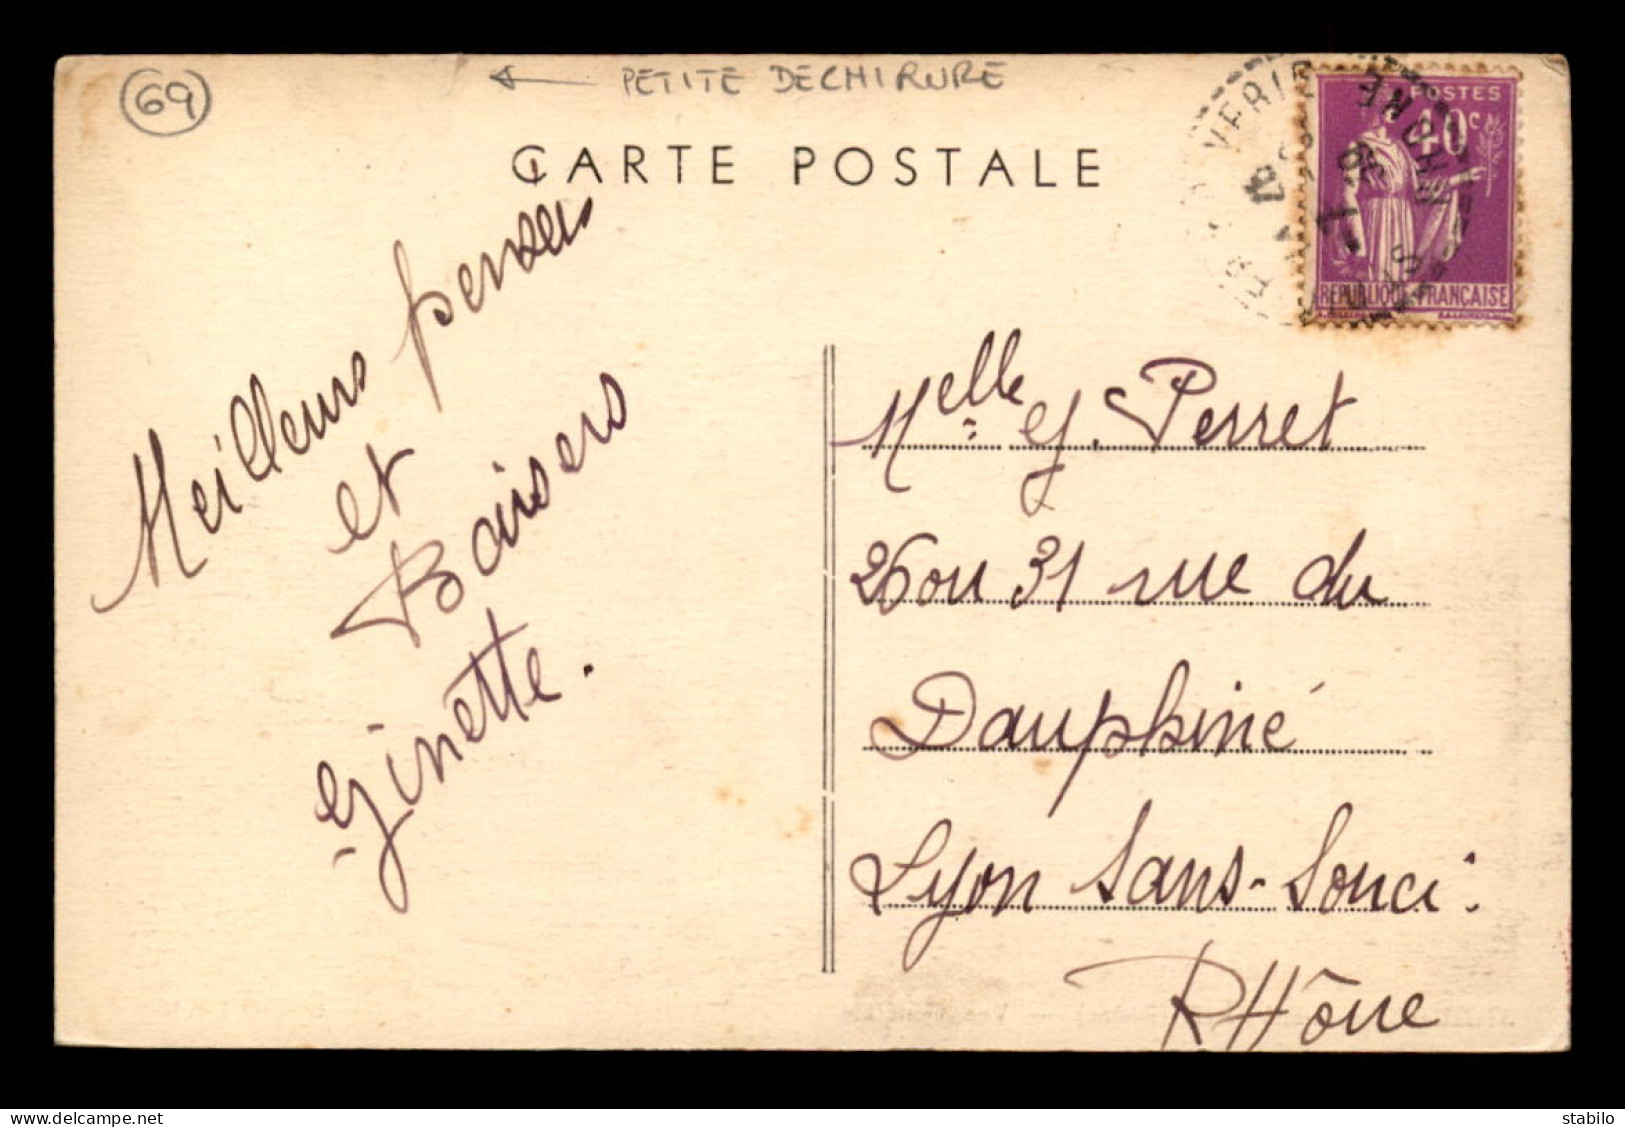 69
PETITE DECHIRURE
CARTE POSTALE
POSTES
40c
REPUBLIQUE FRANÇAISE
RHONE
Meilleurs pensées
et
Baisers
Ginette.
Melle G. Perret
26 ou 31 rue du
Dauphiné
Lyon Sans-Souci.
RHône
delcampe.net
stabilo